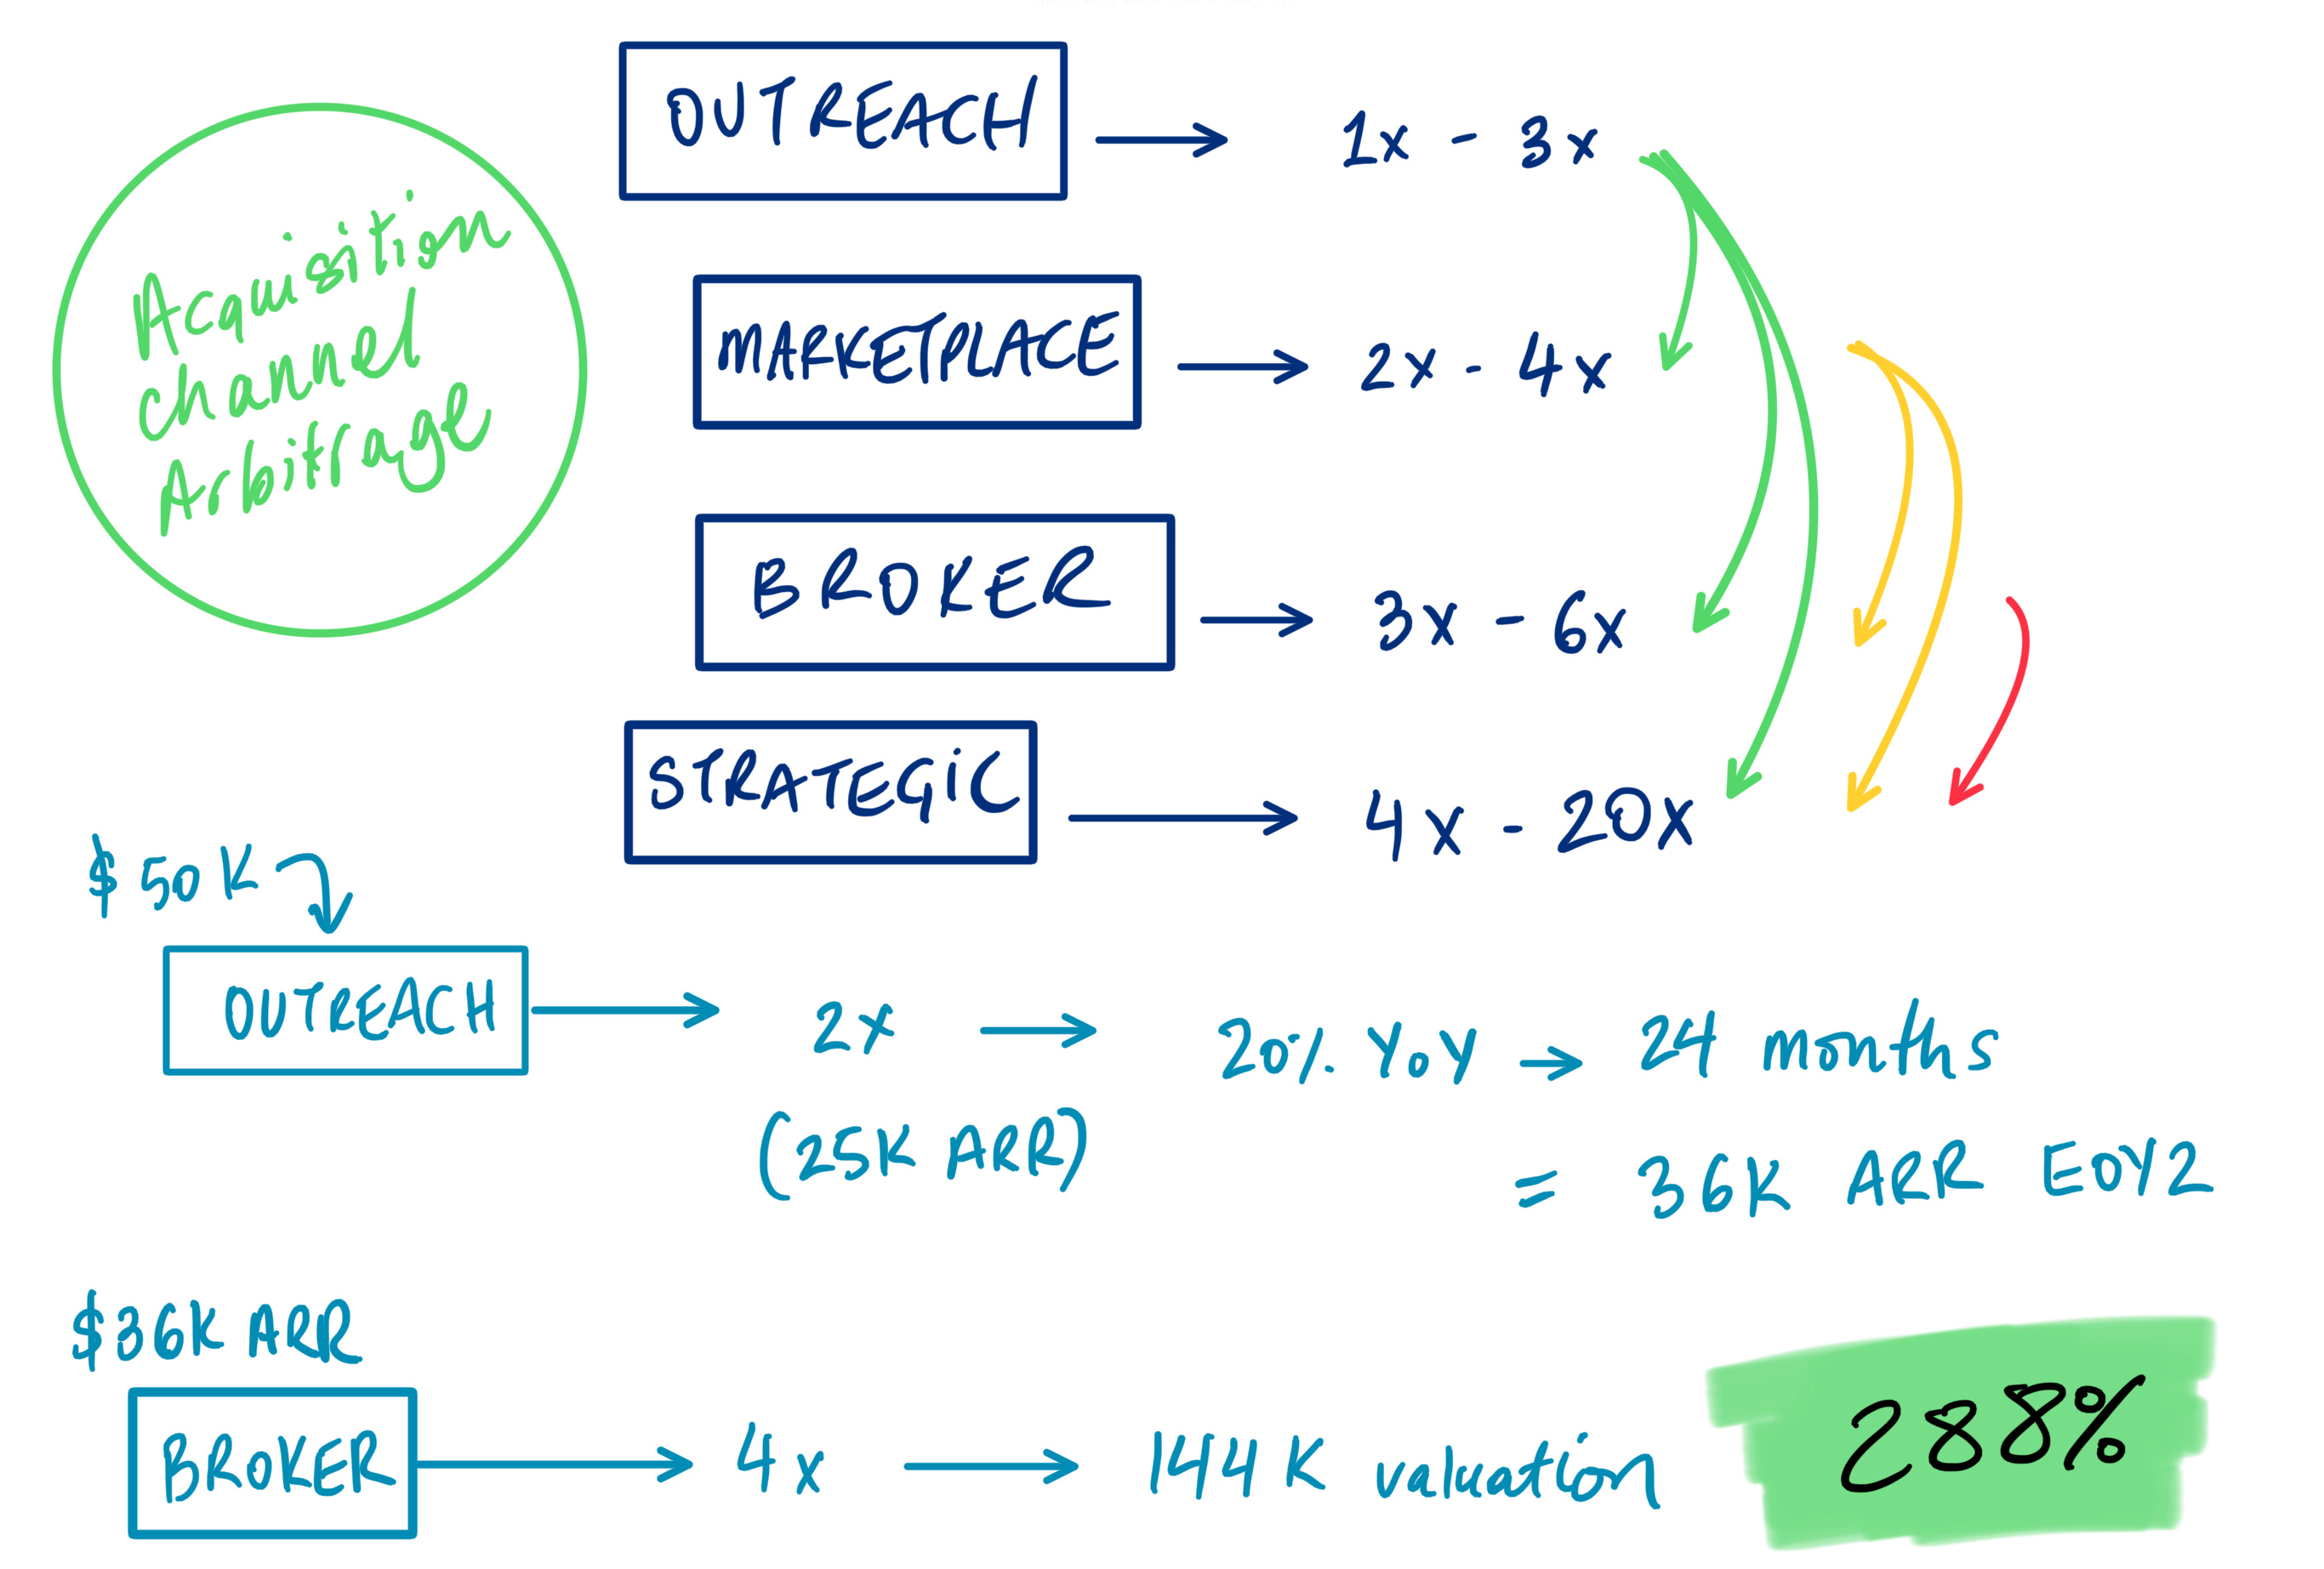 Acquisition
channel
Arbitrage
OUTREACH → 1x - 3x
MARKETPLACE → 2x - 4x
BROKER → 3x - 6x
STRATEGiC → 4x - 20x
$50K
OUTREACH → 2x → 20% YoY → 24 months
(25K ARR)
= 36K ARR EOY2
$36K ARR
BROKER → 4x → 144K valuation
288%